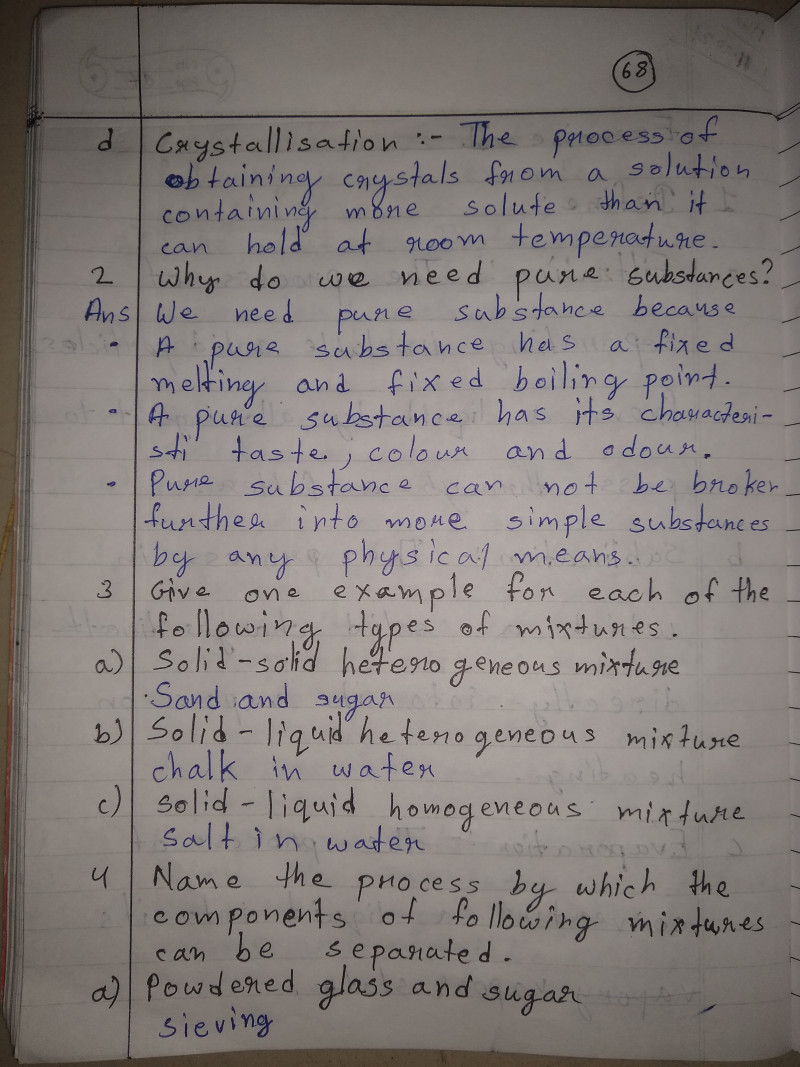 68
d Crystallisation :- The process of
obtaining crystals from a solution
containing more solute than it
can hold at room temperature.
2 Why do we need pure substances?
Ans We need pure substance because
• A pure substance has a fixed
melting and fixed boiling point.
• A pure substance has its characteri-
sti taste, colour and odour.
• Pure substance can not be broker
further into more simple substances
by any physical means.
3 Give one example for each of the
following types of mixtures.
a) Solid-solid heterogeneous mixture
Sand and sugar
b) Solid-liquid heterogeneous mixture
chalk in water
c) solid-liquid homogeneous mixture
Salt in water
4 Name the process by which the
components of following mixtures
can be separated.
a) Powdered glass and sugar
sieving